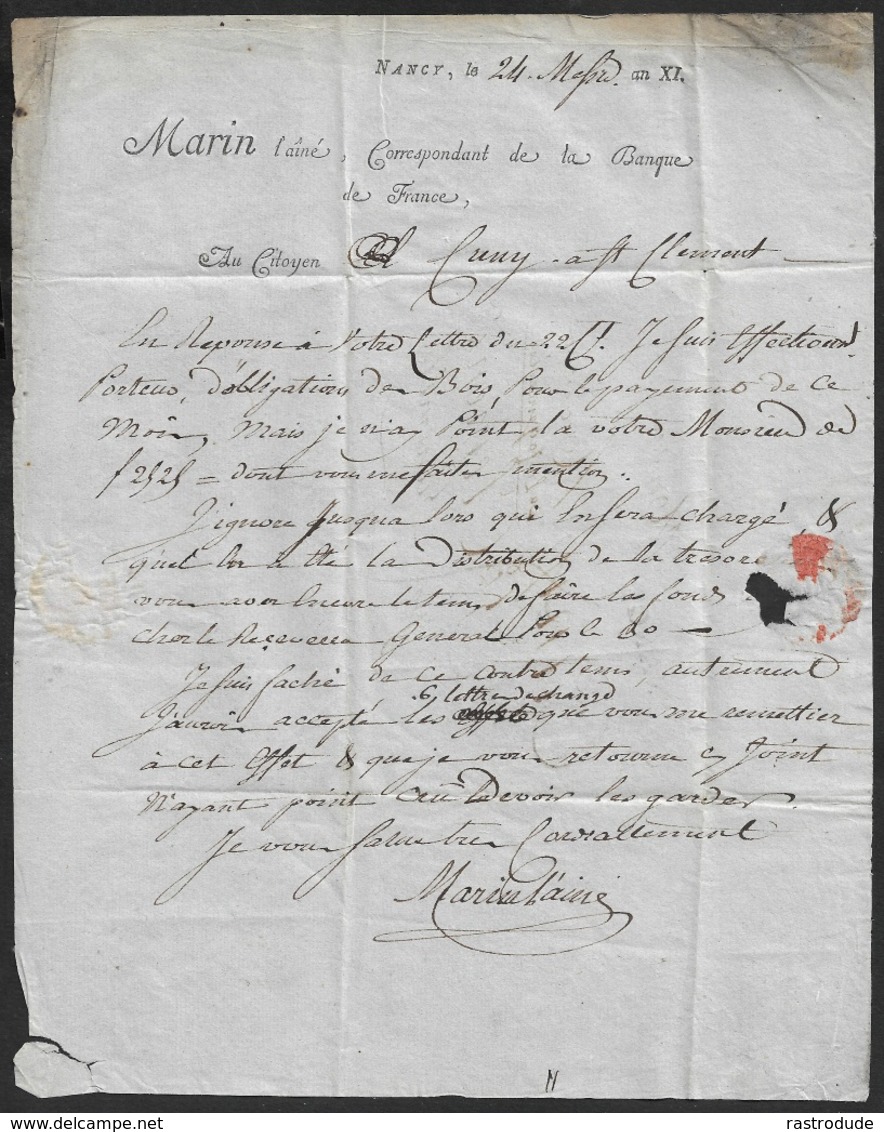 Nancy, le 24. Messid. an XI.
Marin l'aîné, Correspondant de la Banque
de France,
Au Citoyen Cuny a St Clement
En Reponse à Votre Lettre du 22 Ct. Je suis Effectivemt.
Porteur, d'obligations de Bois, Pour le payement de ce
Mois, Mais je n'ay Point la votre Monsieur de
f 2525 = dont vous me faites mention.
J'ignore Jusqua lors qui En sera chargé, &
quel en a été la Distribution de la tresore
vous avez Encore le tems de faire les fonds
chez le Receveur General Pour le 30
Je suis faché de ce contre tems, autrement
6 lettres de change
J'aurois accepté les que vous me remettiez
à cet Effet & que je vous retourne cy Joint
N'ayant point cru devoir les garder.
Je vous salue tres Cordiallement
Marin l'ainé
N
rastrodude